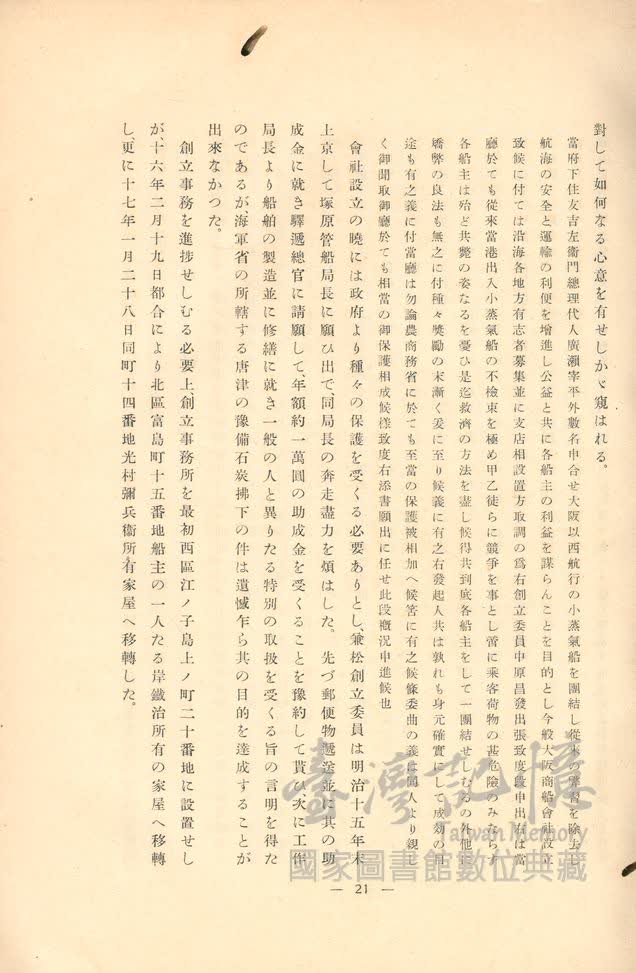 對して如何なる心意を有せしかゞ窺はれる。
當府下住友吉左衞門總理代人廣瀨宰平外數名申合せ大阪以西航行の小蒸氣船を團結し從來の弊習を除去し
航海の安全と運輸の利便を增進し公益と共に各船主の利益を謀らんことを目的とし今般大阪商船會社設立
致候に付ては沿海各地方有志者募集並に支店相設置方取調の爲右創立委員中原昌發出張致度段申出右は當
廳於ても從來當港出入小蒸氣船の不檢束を極め甲乙徒らに競爭を事とし啻に乘客荷物の甚危險のみならず
各船主は殆ど共斃の姿なるを憂ひ是迄救濟の方法を盡し候得共到底各船主をして一團結せしむるの外他に
矯弊の良法も無之に付種々奬勵の末漸く爰に至り候義に有之右發起人共は孰れも身元確實にして成効の目
途も有之義に付當廳は勿論農商務省に於ても至當の保護被相加へ候筈に有之候條委曲の義は同人より親し
く御聞取御廳於ても相當の御保護相成候樣致度右添書願出に任せ此段槪況申進候也
會社設立の曉には政府より種々の保護を受くる必要ありとし、兼松創立委員は明治十五年末
上京して塚原管船局長に願ひ出で、同局長の奔走盡力を煩はした。先づ郵便物遞送並に其の助
成金に就き驛遞總官に請願して、年額約一萬圓の助成金を受くることを豫約して貰ひ、次に工作
局長より船舶の製造並に修繕に就き一般の人と異りたる特別の取扱を受くる旨の言明を得た
のであるが、海軍省の所轄する唐津の豫備石炭拂下の件は遺憾乍ら其の目的を達成することが
出來なかつた。
創立事務を進捗せしむる必要上創立事務所を最初西區江ノ子島上ノ町二十番地に設置せし
が、十六年二月十九日都合により北區富島町十五番地船主の一人たる岸鐵治所有の家屋へ移轉
し、更に十七年一月二十八日同町十四番地光村彌兵衞所有家屋へ移轉した。
— 21 —
臺灣記憶
Taiwan Memory
國家圖書館數位典藏